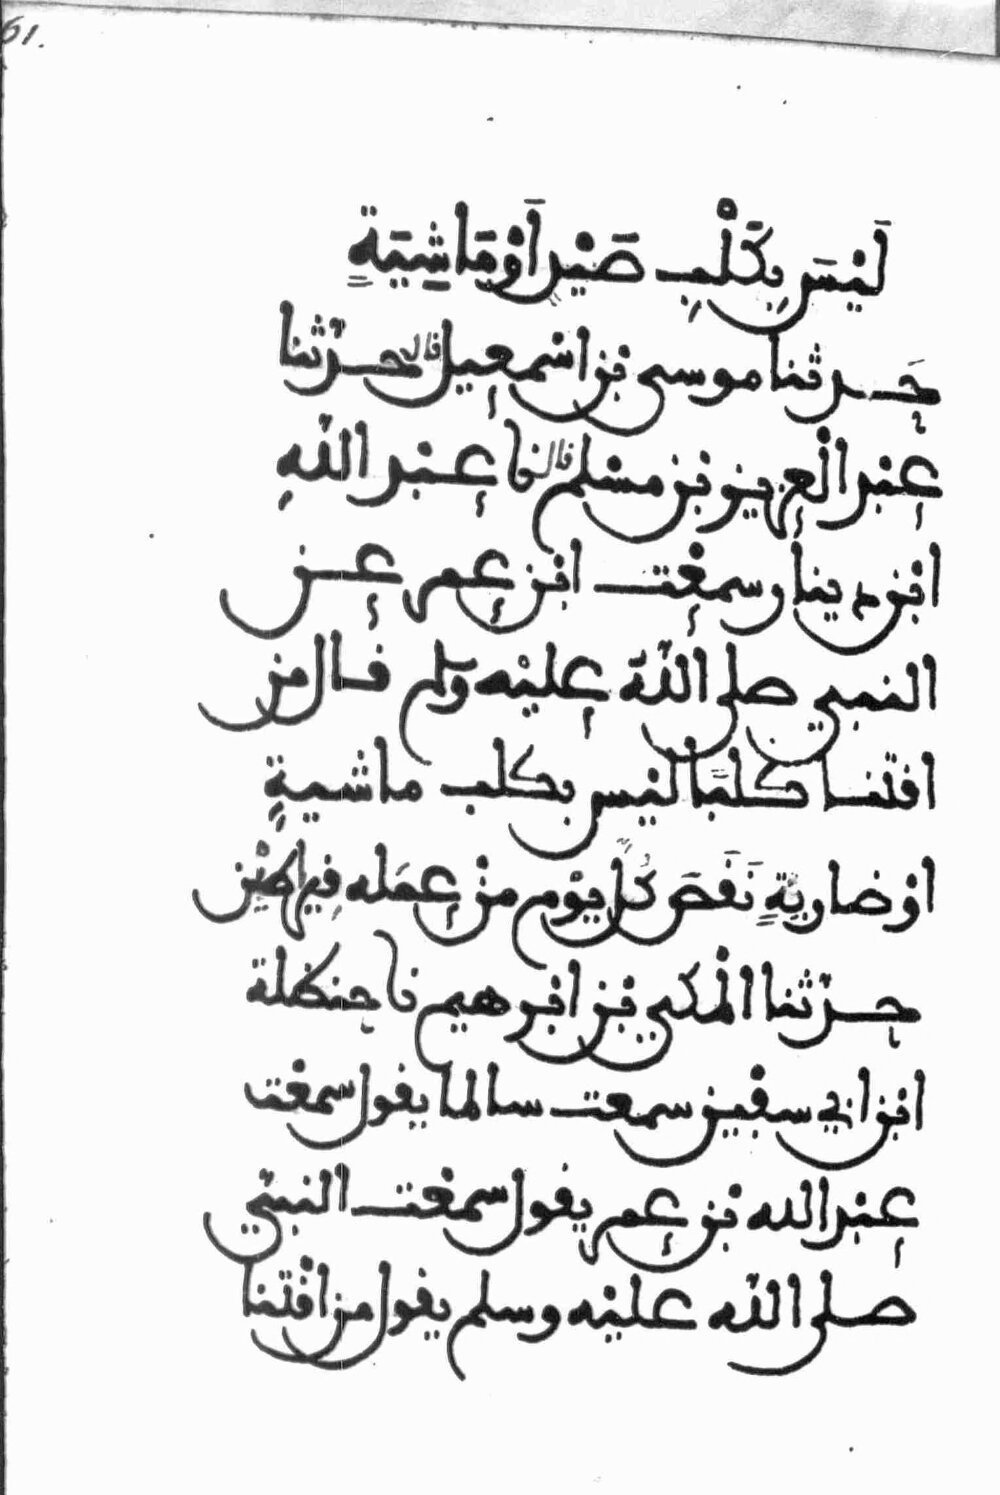 61.
لَيْسَ بِكَلْبِ صَيْدٍ اَوْ مَاشِيَةٍ
حدثنا موسى بن اسمعيل قال حدّثنا
عبد الْعزيز بن مسْلم قال نا عبد اللّهِ
ابن دينار سمعْت ابن عمر عن
النبي صلى اللّه عليْه وسلم قال من
اقتنا كلبًا ليْس بكلب ماشيةٍ
اوْ ضاريةٍ نَقَصَ كُل يوْم منْ عمَله قيراطيْن
حدّثنا الْمكي بن ابرهيم نا حنظلة
ابن ابي سفين سمعت سالما يقول سمعْت
عبد الله بن عمر يقول سمعْت النبيّ
صلى اللّه عليْه وسلم يقول من اقْتنا